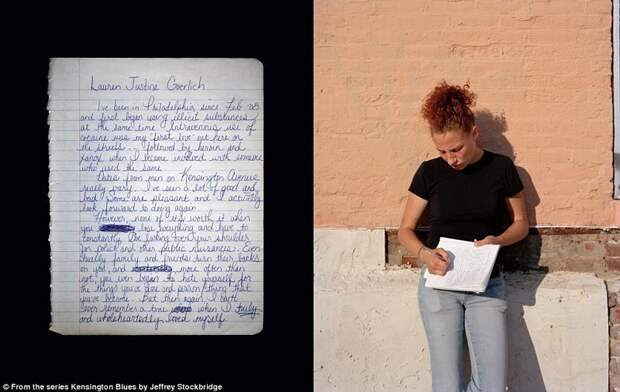 Lauren Justine Goerlich
I've been in Philadelphia since Feb
and first began using illicit substances
at the same time. Intravenous use of
cocaine was my "first love" here on
the streets... followed by heroin and
xanax when I became involved with someone
who used the same.
Dates from men on Kensington Avenue
really vary. I've seen a lot of good and
bad. Some are pleasant and I actually
look forward to doing again.
However, none of it's worth it when
you lose everything and have to
constantly be looking over your shoulder
for police and other public nuisances. Even-
tually family and friends turn their backs
on you, and more often than
not, you even begin to hate yourself for
the things you've done and person/thing that
you've become. But then again, I can't
ever remember a time when I truly
and wholeheartedly loved myself.
© From the series Kensington Blues by Jeffrey Stockbridge